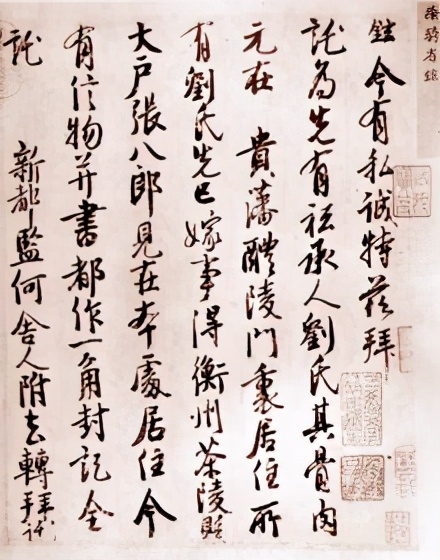 今有私誠特茲拜
託為先有祗承人劉氏其骨肉
元在 貴藩醴陵門裏居住所
有劉氏先已嫁事得衡州茶陵縣
大戶張八郎見在本處居住今
有信物并書都作一角封記全
託
新都監何舍人附去轉拜託